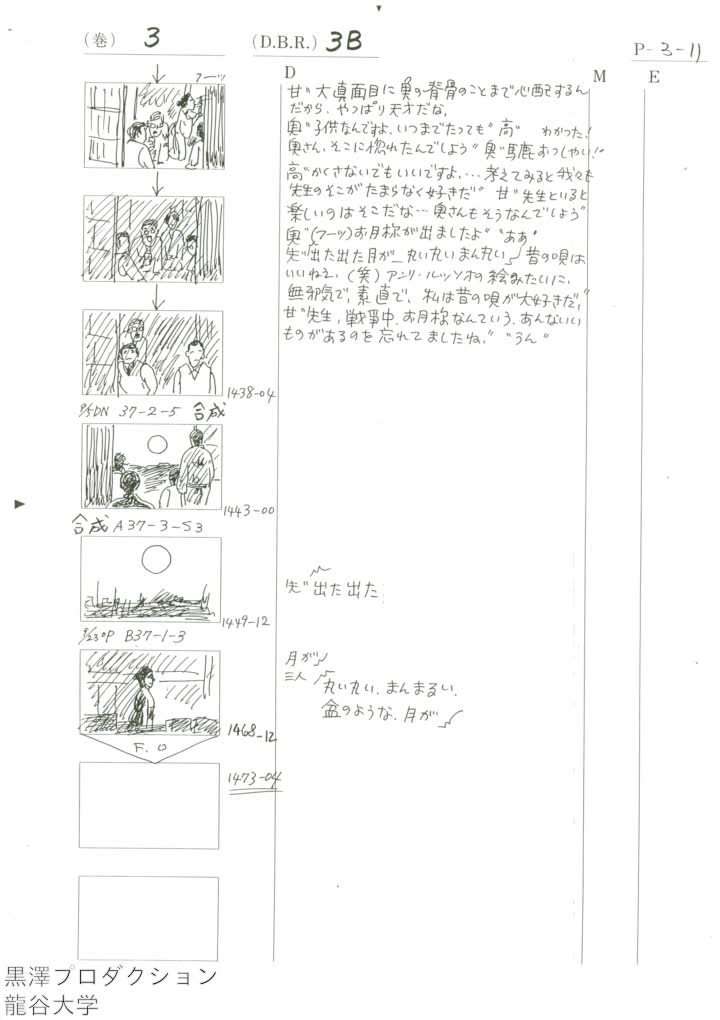 (巻) 3 (D.B.R.) 3B
P-3-11
D M E
アーッ
甘"大真面目に魚の背骨のことまで心配するん
だから、やっぱり天才だな。
奥"子供なんですよ、いつまでたっても" 高" わかった!
奥さん、そこに惚れたんでしょう" 奥"馬鹿おっしゃい!"
高"かくさないでもいいですよ、… 考えてみると我々も
先生のそこがたまらなく好きだ" 甘"先生といると
楽しいのはそこだな… 奥さんもそうなんでしょう"
奥"(アーッ)お月様が出ましたよ" "ああ"
先"出た出た月が 丸い丸いまん丸い 昔の唄は
いいねえ、(笑) アンリ・ルッソオの絵みたいに、
無邪気で、素直で、私は昔の唄が大好きだ"
甘"先生、戦争中、お月様なんていう、あんないい
ものがあるのを忘れてましたね" "うん"
1438-04
9/5DN 37-2-5 合成
1443-00
合成 A37-3-S3
先"出た出た
1449-12
9/23OP B37-1-3
月が
三人
丸い丸い、まんまるい、
盆のような、月が
1468-12
F.O
1473-04
黒澤プロダクション
龍谷大学